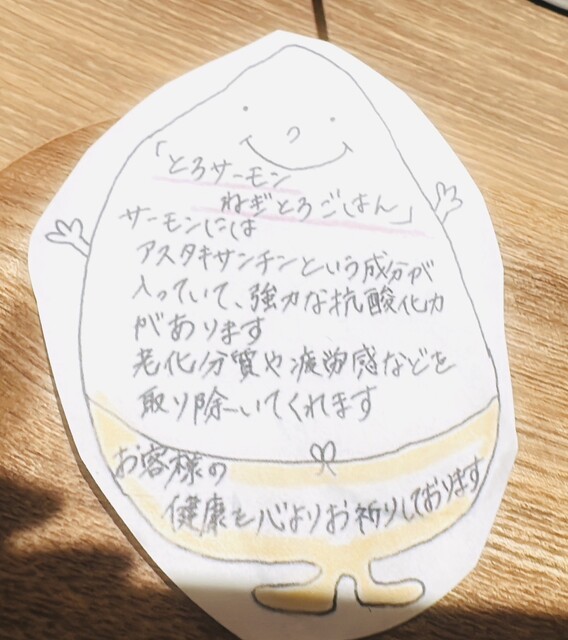 「とろサーモン
ねぎとろごはん」
サーモンには
アスタキサンチンという成分が
入っていて、強力な抗酸化力
があります
老化分質や疲労感などを
取り除いてくれます
お客様の
健康を心よりお祈りしております